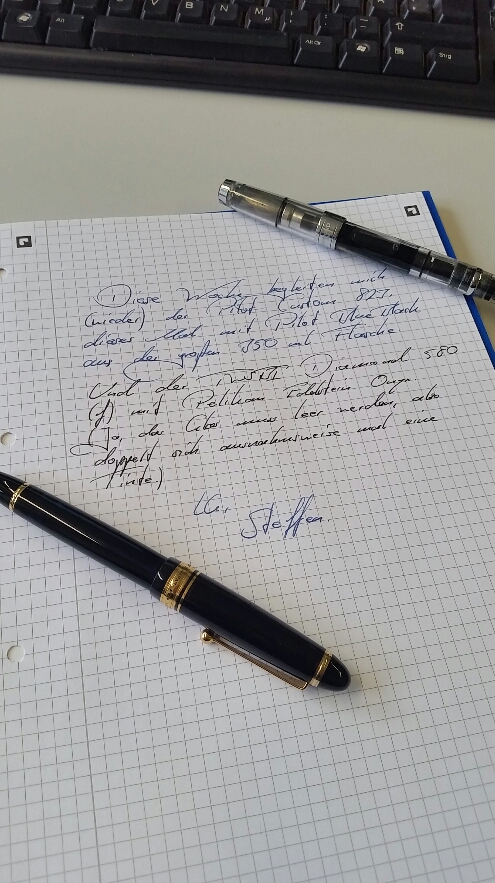 Diese Woche begleiten mich
(wieder) der Pilot Custom 823,
dieses Mal mit Pilot Blue Black
aus der großen 350 ml Flasche
Und der TWSBI Diamond 580
(f) mit Pelikan Edelstein Onyx
(Ja, das Glas muss leer werden, also
doppelt sich ausnahmsweise mal eine
Tinte)
LG,
Steffen